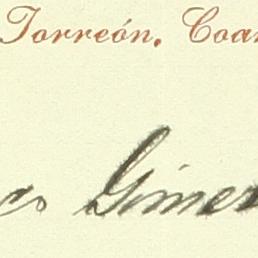 Torreón, Coa
Gimen